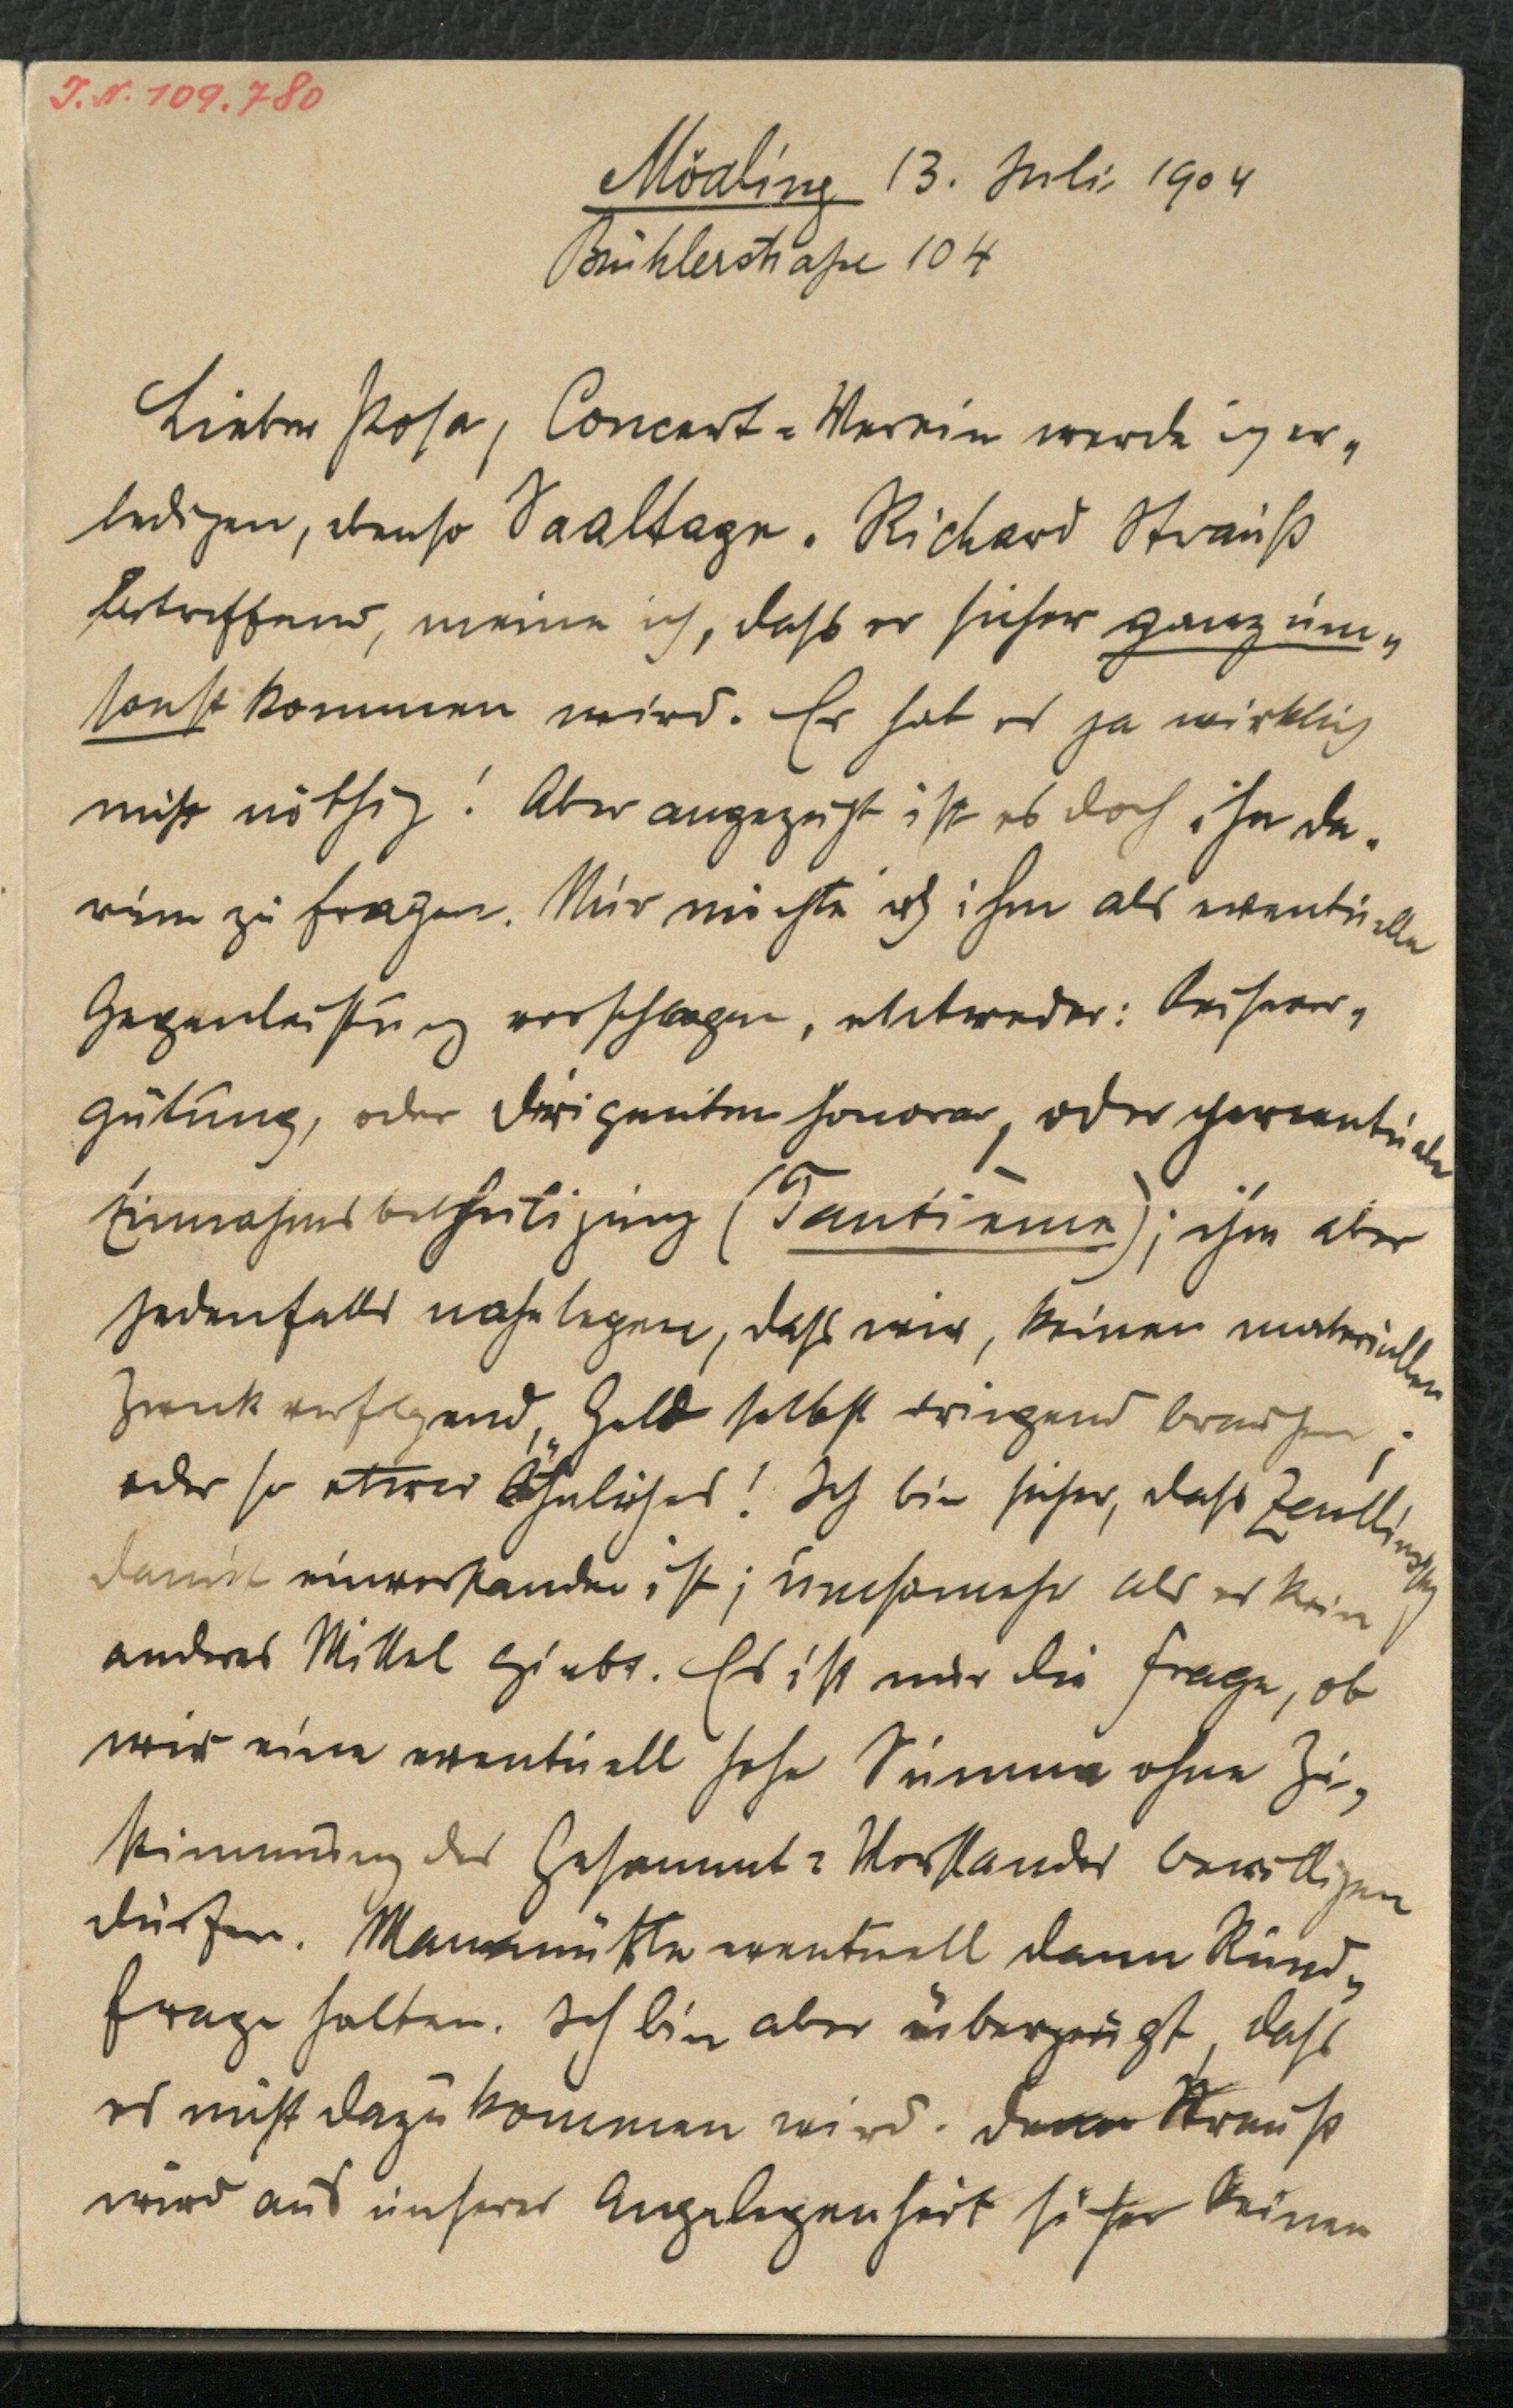 J.N. 109.780
Mödling 13. Juli 1904
Brühlerstraße 104
Lieber Posa, Concert-Verein werde ich er-
ledigen, ebenso Saaltage. Richard Strauß
betreffend, meine ich, dass er sicher ganz um-
sonst kommen wird. Er hat es ja wirklich
nicht nöthig! Aber angezeigt ist es doch ihn da-
rum zu fragen. Nur möchte ich ihm als eventuelle
Gegenleistung vorschlagen, entweder: Reisever-
gütung, oder Dirigentenhonorar, oder percentuale
Einnahmsbetheiligung (Tantième); ihm aber
jedenfalls nahelegen, dass wir, keinen materiellen
Zweck verfolgend, Geld selbst dringend brauchen;
oder so etwas Ähnliches! Ich bin sicher, dass Zemlinsky
damit einverstanden ist; umsomehr als es kein
anderes Mittel giebt. Es ist nur die Frage, ob
wir eine eventuell hohe Summe ohne Zu-
stimmung des Gesammt-Vorstandes bewilligen
dürfen. Man müßte eventuell dann Rund-
frage halten. Ich bin aber überzeugt, dass
es nicht dazu kommen wird. Denn Strauß
wird aus unserer Angelegenheit sicher keinen